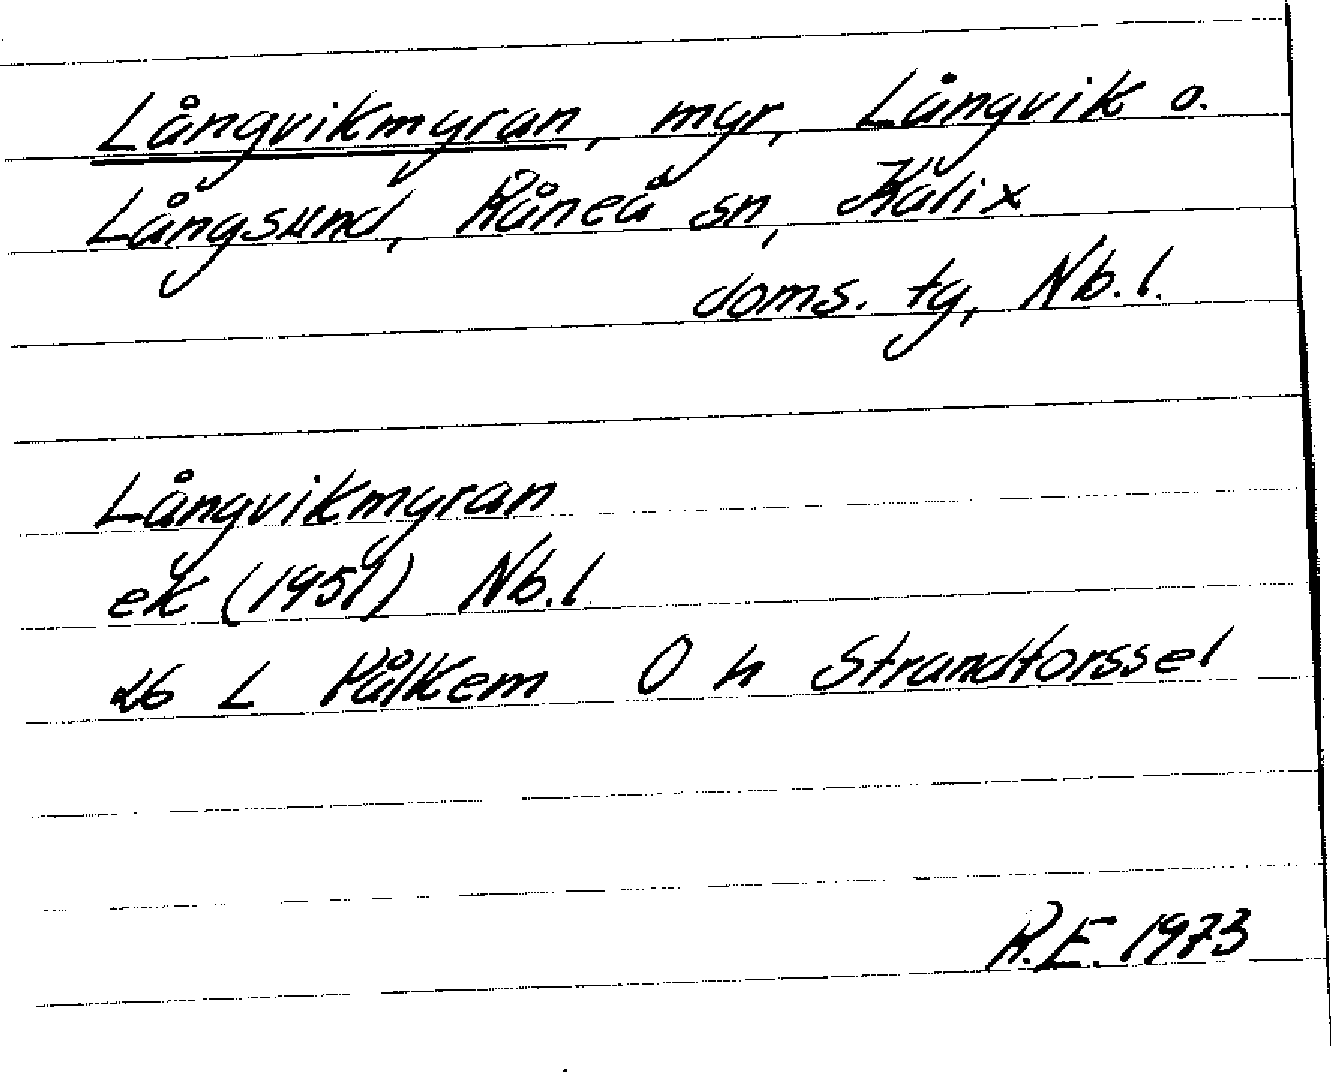 Långvikmyran, myr, Långvik o.
Långsund, Råneå sn, Kalix
doms. tg, Nb. l.
Långvikmyran
ek (1951) Nb. l
26 L Pålkem O h Strandforssel
R.E. 1973